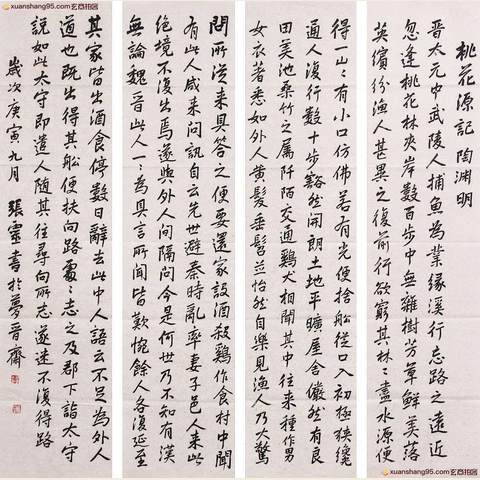 xuanshang95.com
xuanshang95.com
桃花源記 陶淵明
晉太元中武陵人捕魚為業緣溪行忘路之遠近
忽逢桃花林夾岸數百步中無雜樹芳草鮮美落
英繽紛漁人甚異之復前行欲窮其林〻盡水源便
得一山〻有小口仿佛若有光便捨船從口入初極狹纔
通人復行數十步豁然開朗土地平曠屋舍儼然有良
田美池桑竹之屬阡陌交通鷄犬相聞其中往來種作男
女衣著悉如外人黃髮垂髫並怡然自樂見漁人乃大驚
問所從來具答之便要還家設酒殺鷄作食村中聞
有此人咸來問訊自云先世避秦時亂率妻子邑人來此
絕境不復出焉遂與外人間隔問今是何世乃不知有漢
無論魏晉此人一〻為具言所聞皆歎惋餘人各復延至
其家皆出酒食停數日辭去此中人語云不足為外人
道也既出得其船便扶向路處〻志之及郡下詣太守
說如此太守即遣人隨其往尋向所志遂迷不復得路
歲次庚寅九月 張靈書於夢晉齋
xuanshang95.com